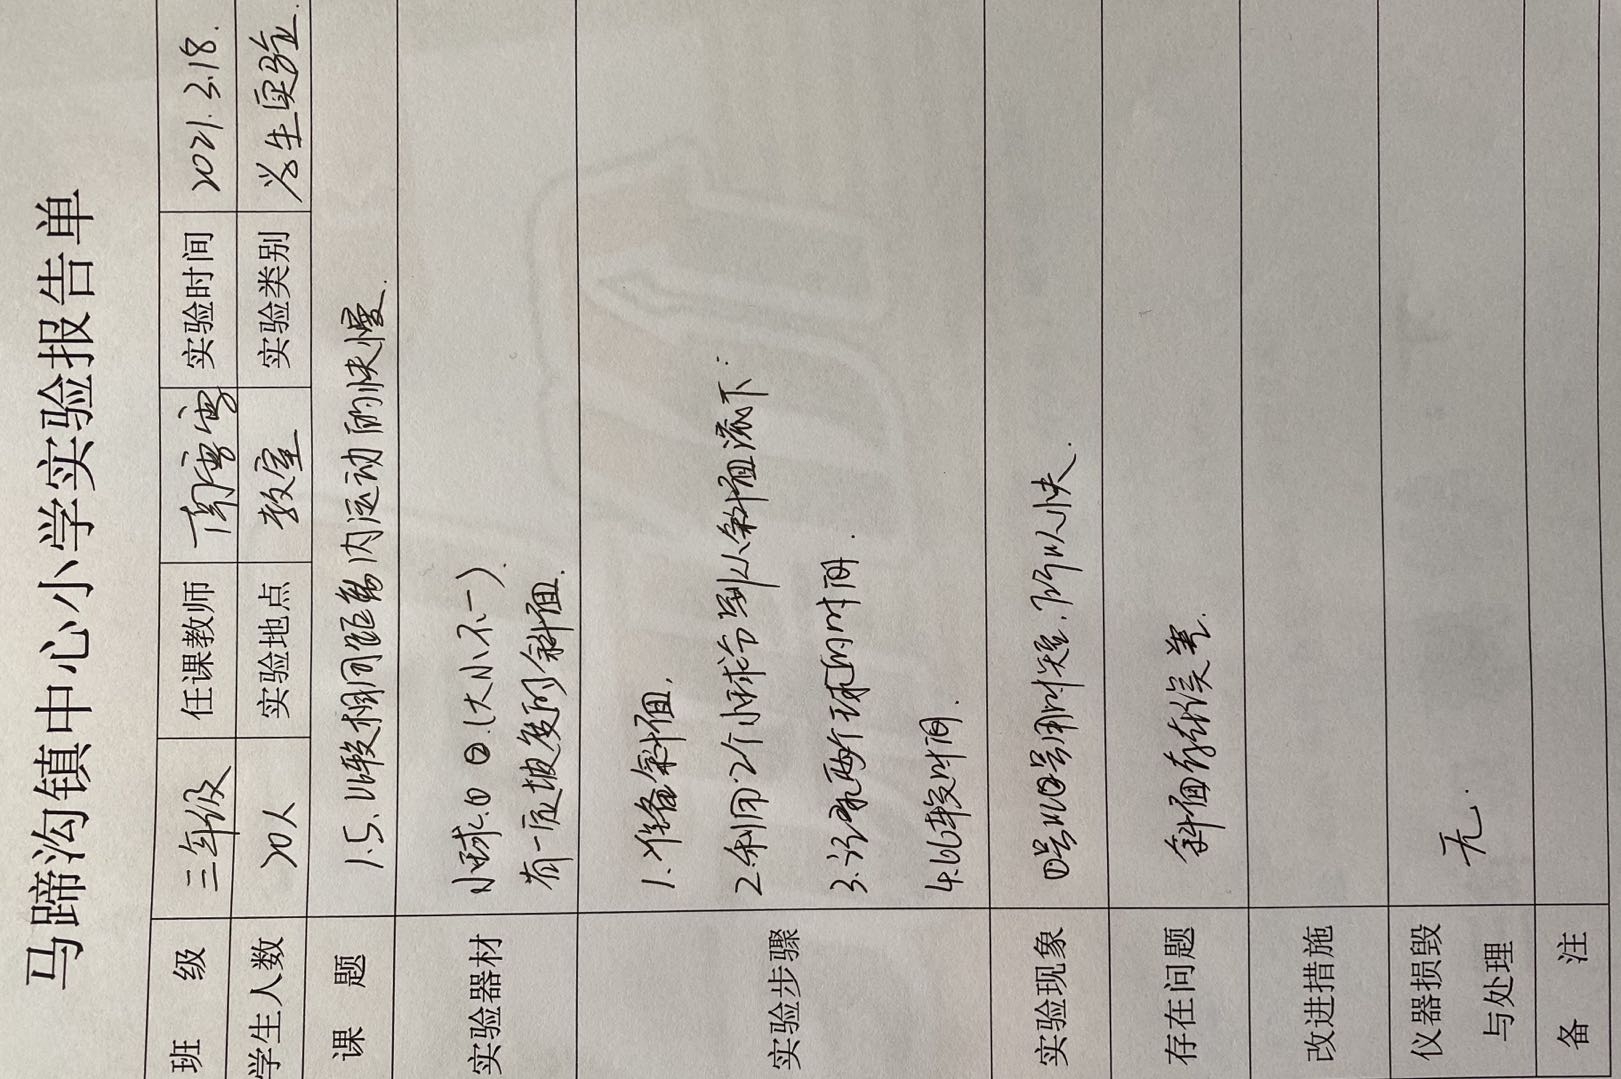 马蹄沟镇中心小学实验报告单
班 级 三年级 任课教师 实验时间 2021.3.18.
学生人数 20人 实验地点 教室 实验类别 学生实验.
课 题 1.5.比较相同距离内运动的快慢.
实验器材 小球.① ②.(大小不一).
有一定坡度的斜面.
实验步骤 1.准备斜面.
2.利用2个小球分别从斜面流下.
3.记录两个球的时间.
4.比较时间.
实验现象 ①号比②号用时短,所以快.
存在问题 斜面有误差.
改进措施
仪器损毁 无.
与处理
备 注